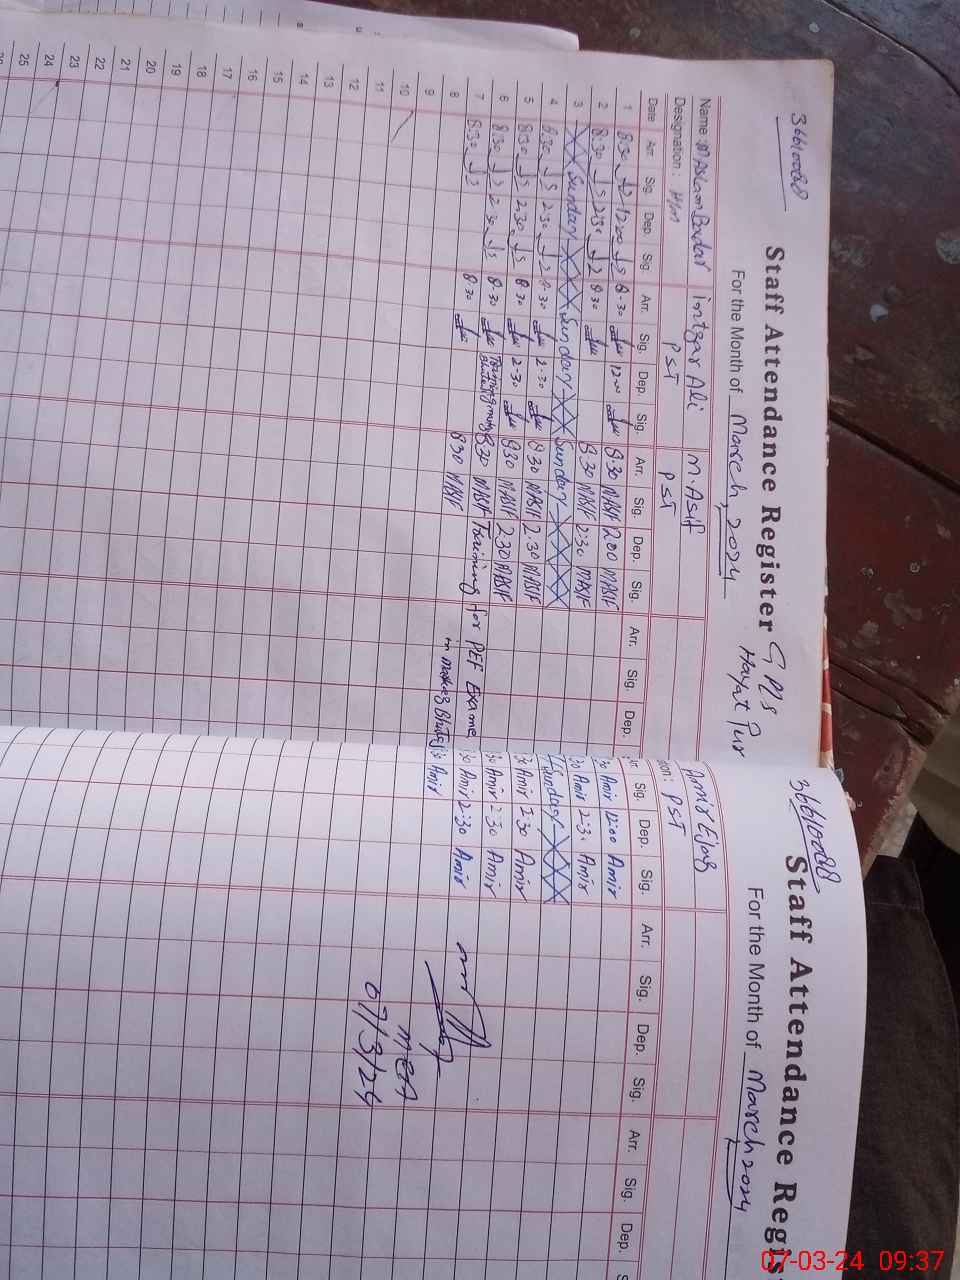 36610088
Staff Attendance Register
GPS
Hayat Pur
For the Month of March, 2024
Name : M Aslam Bodar Intzar Ali M. Asif
Designation : H/M PST PST
Date Arr. Sig. Dep. Sig. Arr. Sig. Dep. Sig. Arr. Sig. Dep. Sig. Arr. Sig. Dep.
1 8:30 12:00 8:30 12:00 8:30 MASIF 12:00 MASIF
2 8:30 2:30 8:30 8:30 MASIF 2:30 MASIF
3 Sunday Sunday Sunday
4 8:30 2:30 8:30 2:30 8:30 MASIF 2:30 MASIF
5 8:30 2:30 8:30 2:30 8:30 MASIF 2:30 MASIF
6 8:30 2:30 8:30 Training 8:30 MASIF Training for PEF Exame
7 8:30 8:30 8:30 MASIF
8
9
10
11
12
13
14
15
16
17
18
19
20
21
22
23
24
25
36610088
Staff Attendance Regis
For the Month of March 2024
Amir Ejaz
PST
Sig. Dep. Sig. Arr. Sig. Dep. Sig. Arr. Sig. Dep.
Amir 12:00 Amir
Amir 2:30 Amir
Sunday
Amir 2:30 Amir
Amir 2:30 Amir
Amir 2:30 Amir
Amir
MEA
07/3/24
07-03-24 09:37